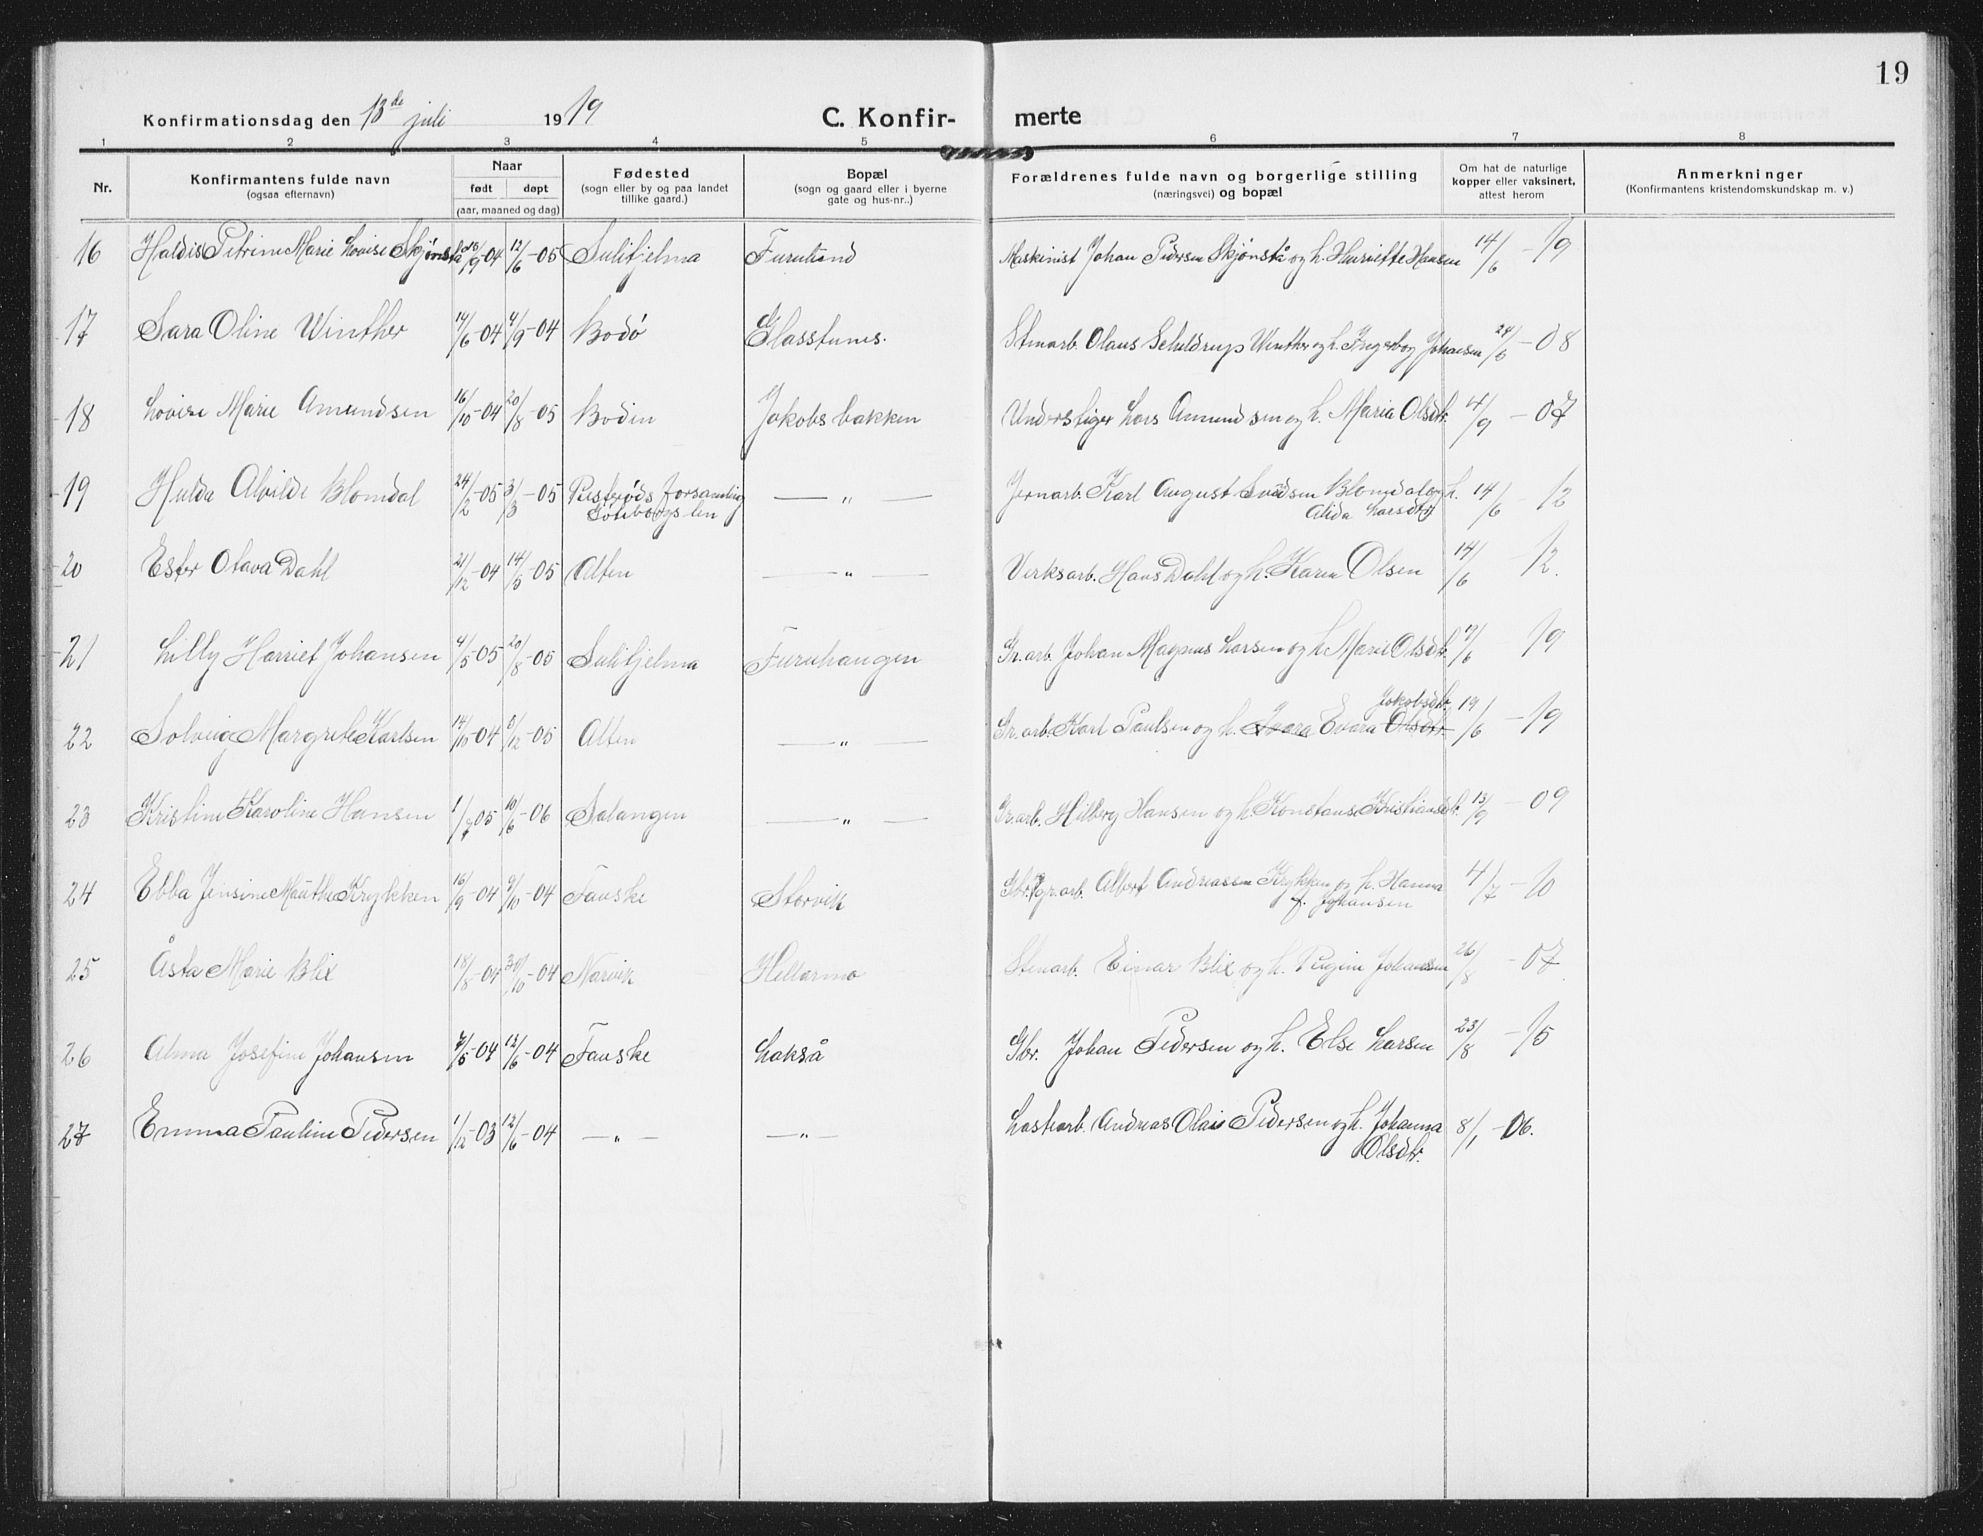 19
Konfirmationsdag den 13de juli 1919 C. Konfir- merte
1 2 3 4 5 6 7 8
Nr. Konfirmantens fulde navn (ogsaa efternavn) Naar født døpt (aar, maaned og dag) Fødested (sogn eller by og paa landet tillike gaard.) Bopæl (sogn og gaard eller i byerne gate og hus-nr..) Forældrenes fulde navn og borgerlige stilling (næringsvei) og bopæl Om hat de naturlige kopper eller vaksinert, attest herom Anmerkninger (Konfirmantens kristendomskundskap m. v.)
16 Haldis Petrine Marie Lovise Skjønstå /9-04 12/6-05 Sulitjelma Furulund Maskinist Johan Pedersen Skjønstå og h. Henriette Hansen 14/6-19
17 Sara Oline Winther 14/6 04 4/9-04 Bodø Glasstunes. Stenarb. Olaus Schuldrup Winther og h. Ingeborg Johansen 24/6-08
18 Lovise Marie Amundsen 16/10-04 20/8-05 Bodin Jakobsbakken Understiger Lars Amundsen og h. Maria Olsdtr. 4/9-07
19 Hulda Alvilde Blomdal 24/2-05 3/3-05 forsamling Göteborgs len —„— Jernarb. Karl August Blomdal og h. Alida Larsdtr 14/6-12
20 Ester Olava Dahl 21/12-04 14/5-05 Alten —„— Verksarb. Hans Dahl og h. Karen Olsen 14/6-12.
21 Lilly Harriet Johansen 4/5-05 20/8-05 Sulitjelma Furuhaugen Gr.arb. Johan Magnus Larsen og h. Marie Olsdtr. /6-19
22 Solveig Margrete Karlsen 14/10-04 /12-05 Alten —„— Gr.arb. Karl Paulsen og h. Ivara Evara Olsdtr. Jakobsdtr. 19/6-19
23 Kristine Karoline Hansen 1/7 05 10/6-06 Salangen —„— Gr.arb. Hilberg Hansen og h. Konstanse Kristiansdtr. 13/9-09
24 Ebba Jensine Mauthe Krykken 16/9-04 9/10-04 Fauske Storvik Gbr. gr.arb. Albert Andreassen Krykken og h. Hanna f. Johansen 4/7-10
25 Åsta Marie Blix 18/8-04 30/10-04 Narvik Hellarmo Stenarb. Einar Blix og h. Johansen 26/8-07
26 Alma Josefine Johansen 7/5-04 12/6-04 Fauske Lakså Gbr. Johan Pedersen og h. Else Larsen 23/8-15
27 Emma Pauline Pedersen 1/12-03 12/6-04 —„— —„— Lastearb. Andreas Olai Pedersen og h. Johanna Olsdtr. 8/1-06.